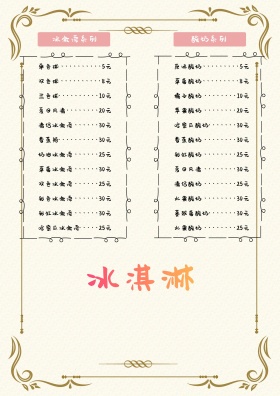 冰淇淋系列
单色球······5元
双色球······8元
三色球······10元
夏日风情······20元
情侣冰淇淋······30元
香蕉船······30元
奶油冰淇淋······25元
草莓冰淇淋······30元
双色冰淇淋······25元
彩色冰淇淋······30元
彩虹冰淇淋······30元
冰雪儿冰淇淋······25元
酸奶系列
原味酸奶······5元
草莓酸奶······8元
橘子酸奶······10元
苹果酸奶······20元
冰雪儿酸奶······30元
香蕉酸奶······30元
彩虹酸奶······25元
夏日风情······30元
情侣酸奶······25元
火果酸奶······30元
蔓越莓酸奶······30元
火果酸奶······25元
冰淇淋